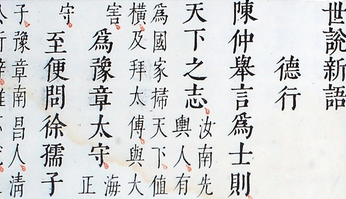 世說新語
德行
陳仲舉言爲士則
天下之志
汝南先
輿人有
爲國家掃天下值
橫及拜太傅與大
害
爲豫章太守
海
正
守
至便問徐孺子
子豫章南昌人清